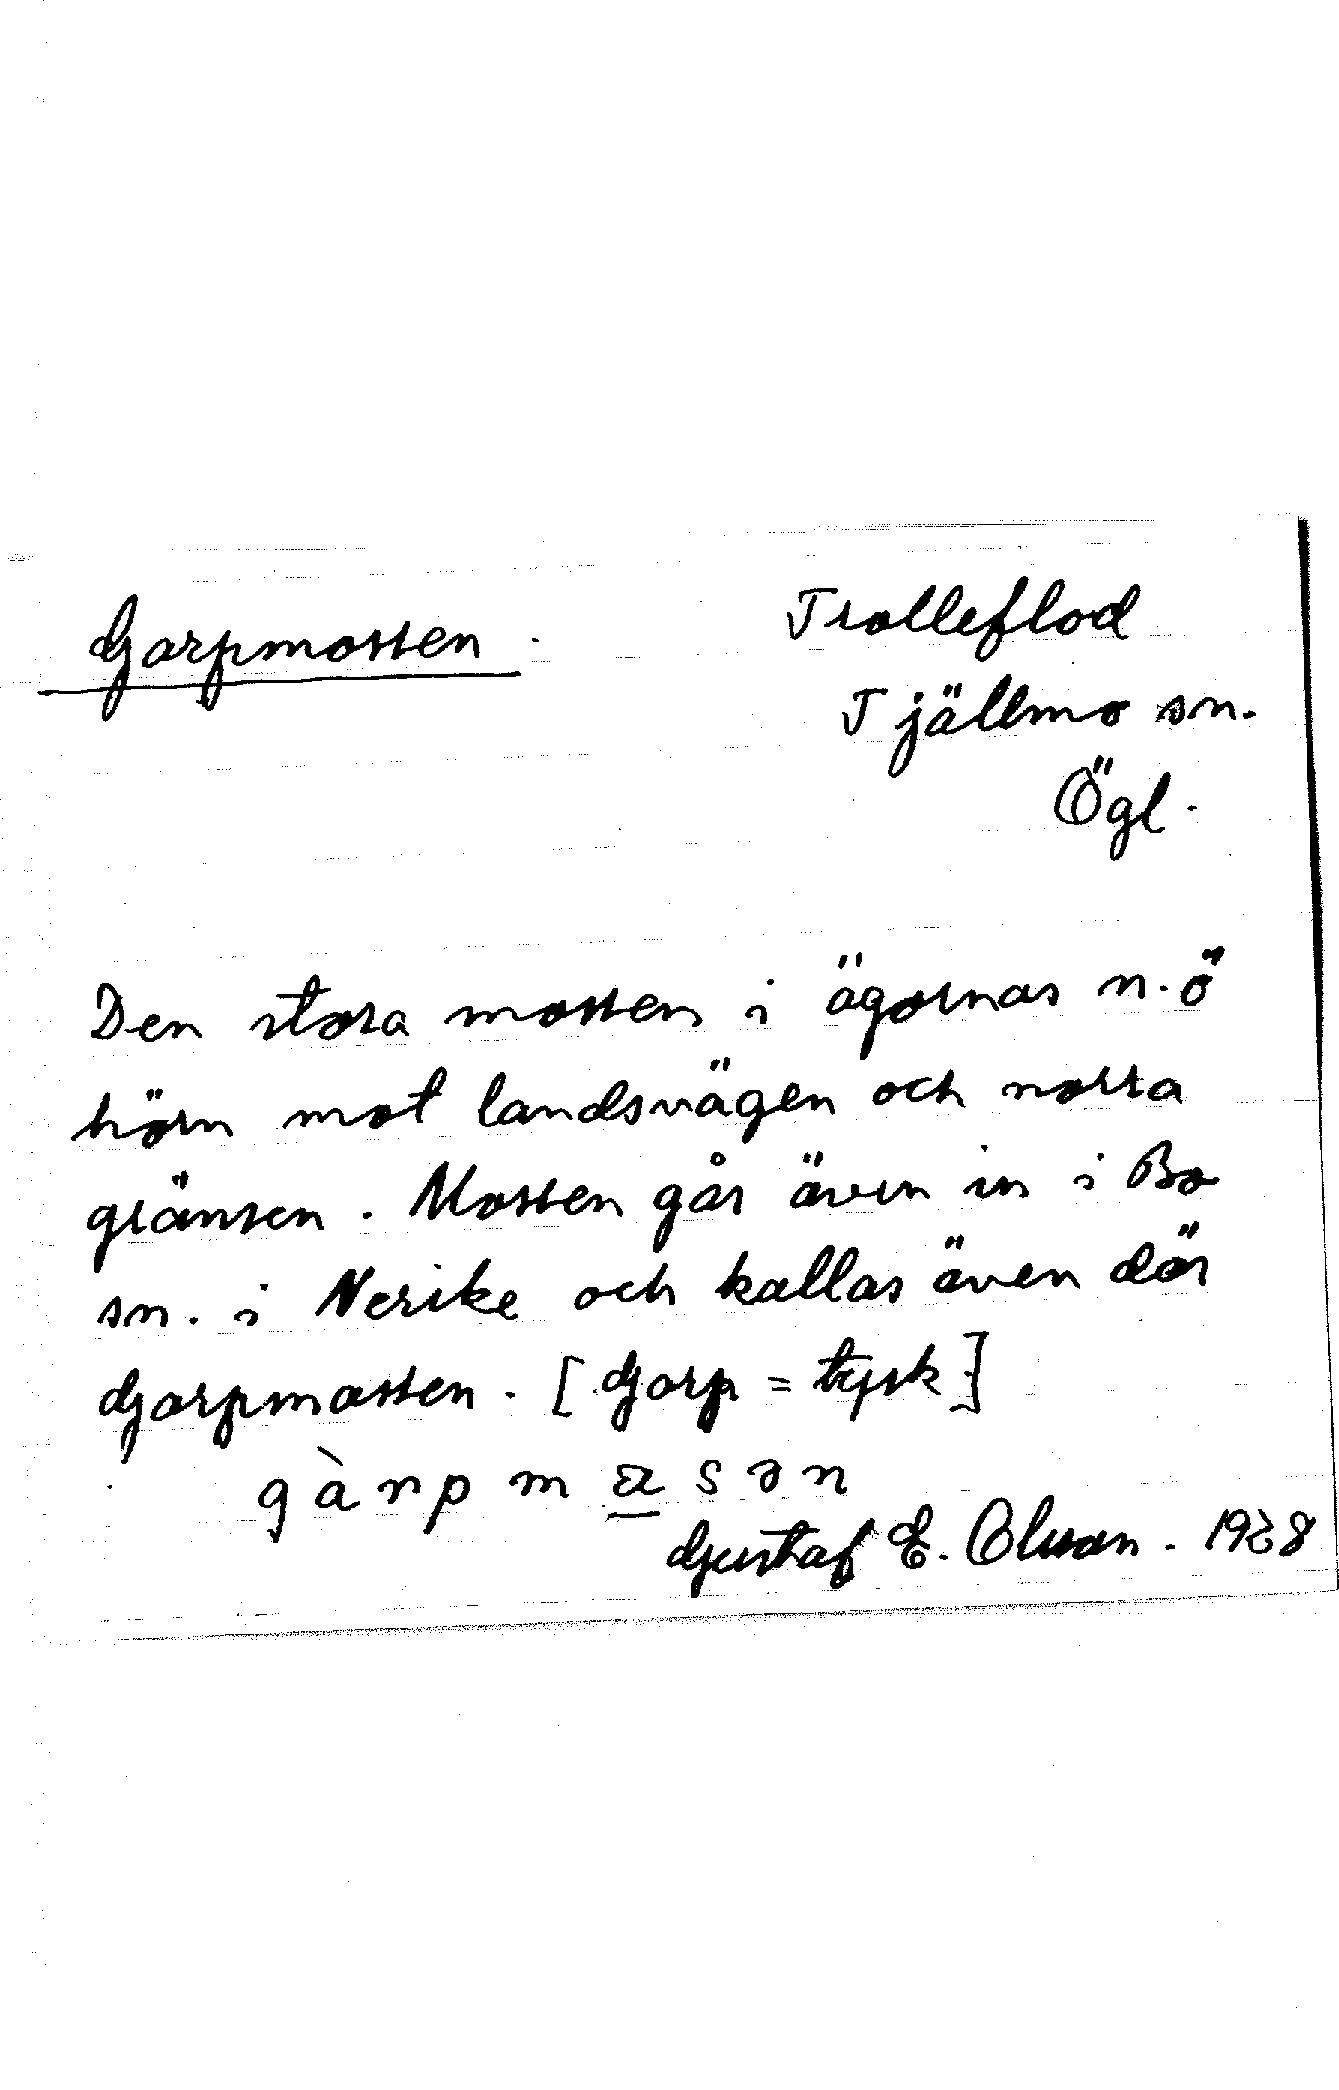 Garpmossen.
Trolleflod
Tjällmo sn.
Ögl.
Den stora mossen i ägornas n.ö
hörn mot landsvägen och norra
gränsen. Mossen går även in i Bo
sn. i Nerike och kallas även där
Garpmossen. [Garp = tysk]
gàrpmasən
Gustaf E. Olsson. 1928